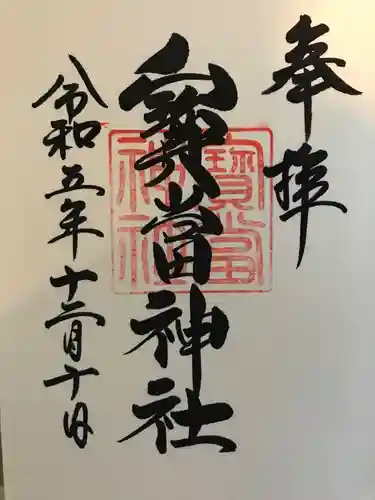 奉拝
寳當神社
寳當
神社
令和五年十二月十日